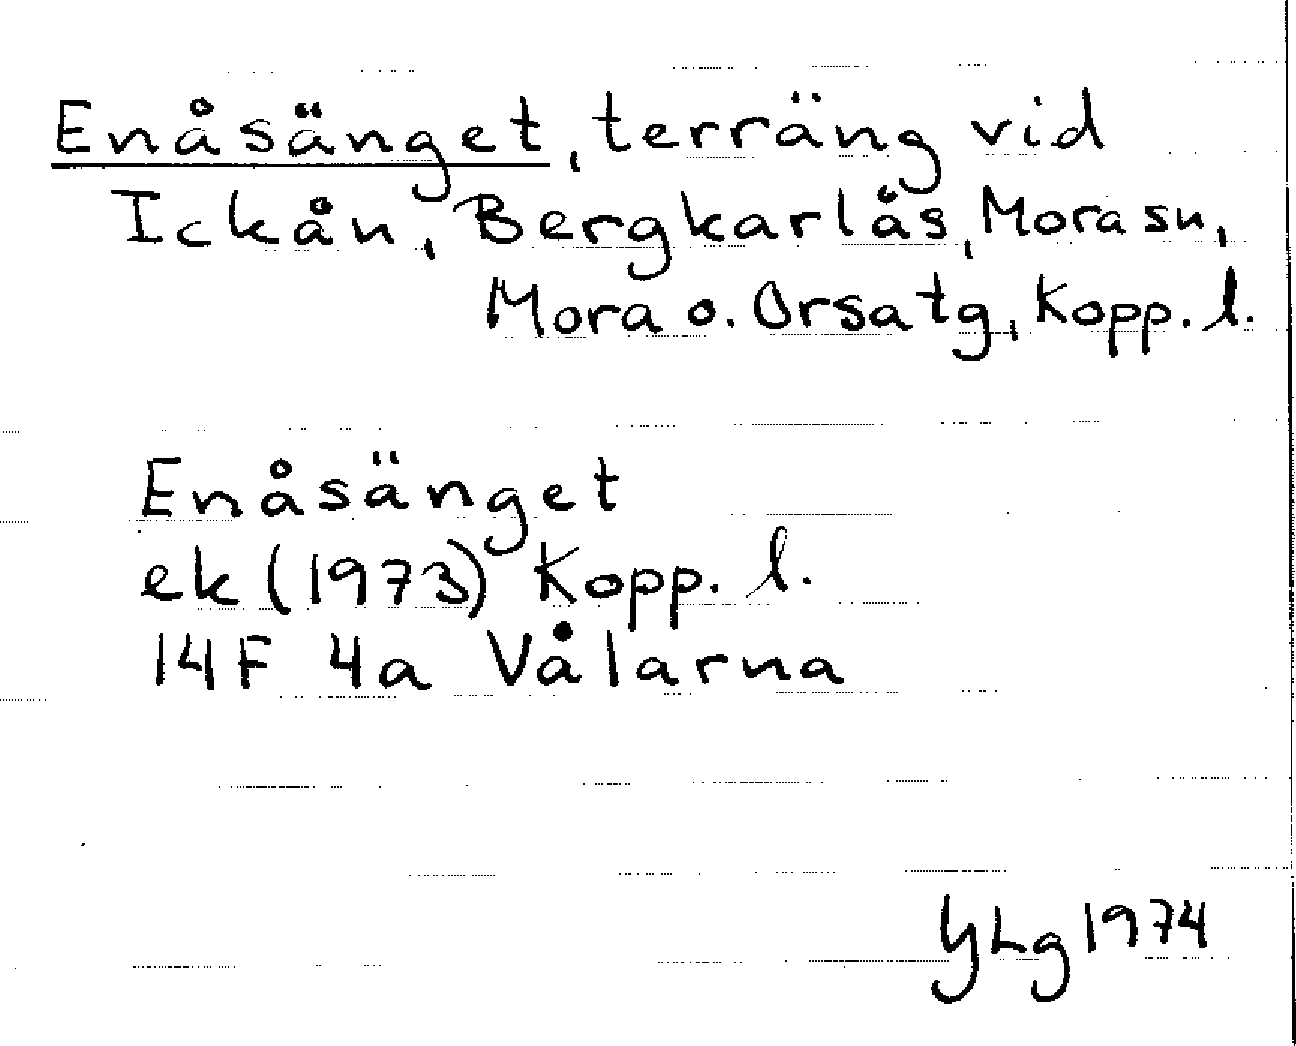 Enåsänget, terräng vid
Ickån, Bergkarlås, Mora sn,
Mora o. Orsa tg, Kopp. l.
Enåsänget
ek (1973) Kopp. l.
14F 4a Vålarna
YLg 1974